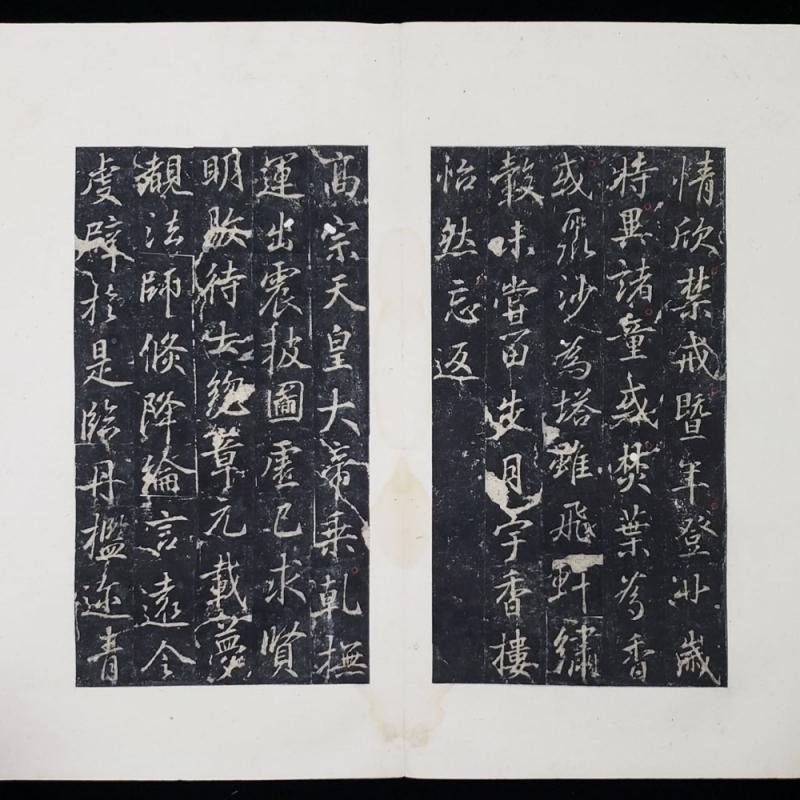 情欣禁戒暨年登卅歲
特異諸童或焚葉為香
或聚沙為塔雖飛軒繡
轂未嘗留步月宇香樓
怡然忘返
高宗天皇大帝乘乹撫
運出震披圖虛己求賢
明敭待士絕尊元載夢
覩法師倏降綸言遠令
虔辟於是臨丹檻近青